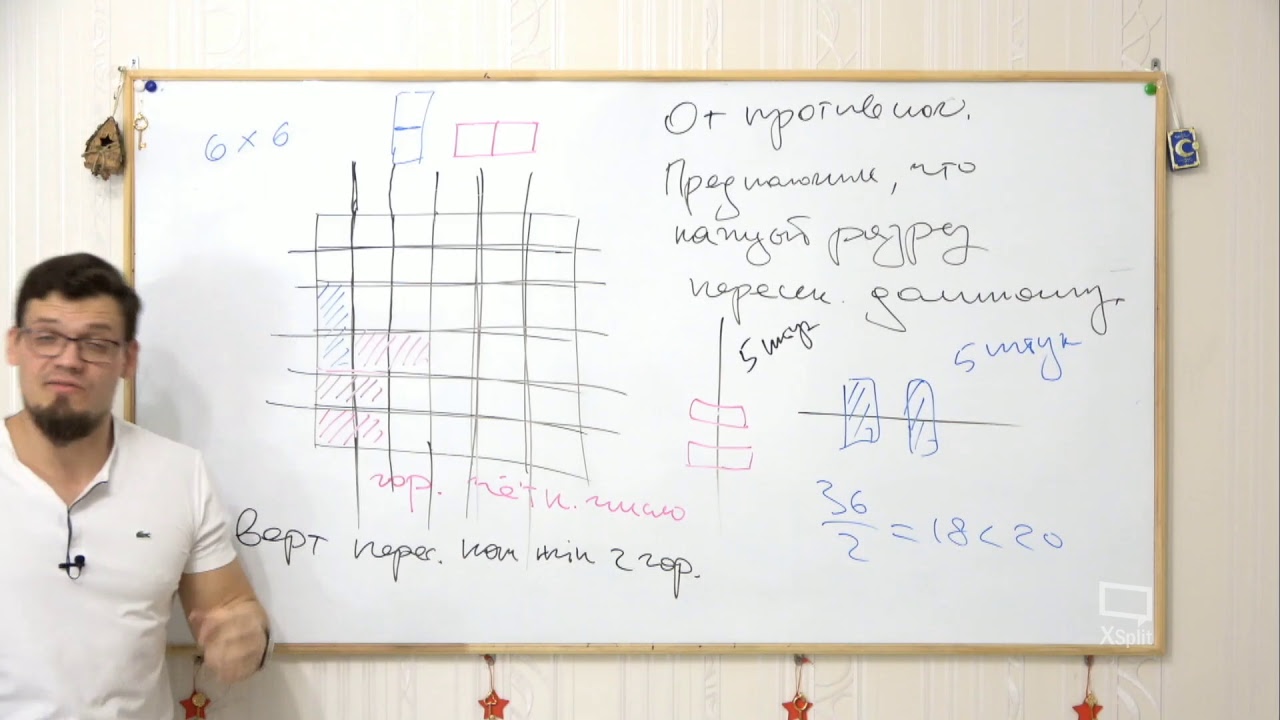 6 × 6
От противног.
Предположим, что
каждый разрез
пересек. доминошку.
5 штук
5 штук
36/2 = 18 < 20
гор. чётн. число
Верт перес. как min 2 гор.
XSplit